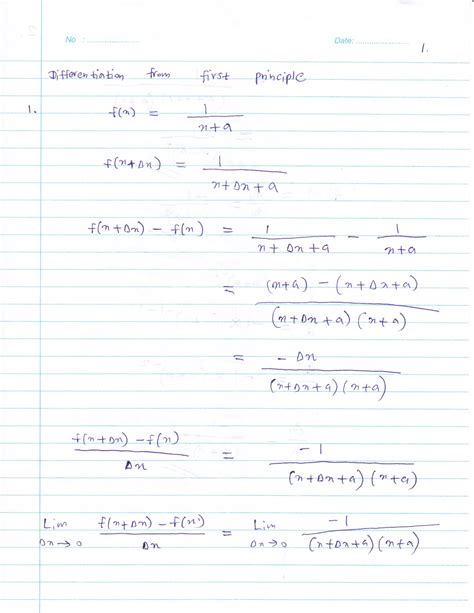 No : ..................... Date: .....................
1.
Differentiation from first principle
1. f(x) = 1/(x+a)
f(x+Δx) = 1/(x+Δx+a)
f(x+Δx) − f(x) = 1/(x+Δx+a) − 1/(x+a)
= ((x+a) − (x+Δx+a))/((x+Δx+a)(x+a))
= −Δx/((x+Δx+a)(x+a))
(f(x+Δx) − f(x))/Δx = −1/((x+Δx+a)(x+a))
Lim Δx→0 (f(x+Δx) − f(x))/Δx = Lim Δx→0 −1/((x+Δx+a)(x+a))